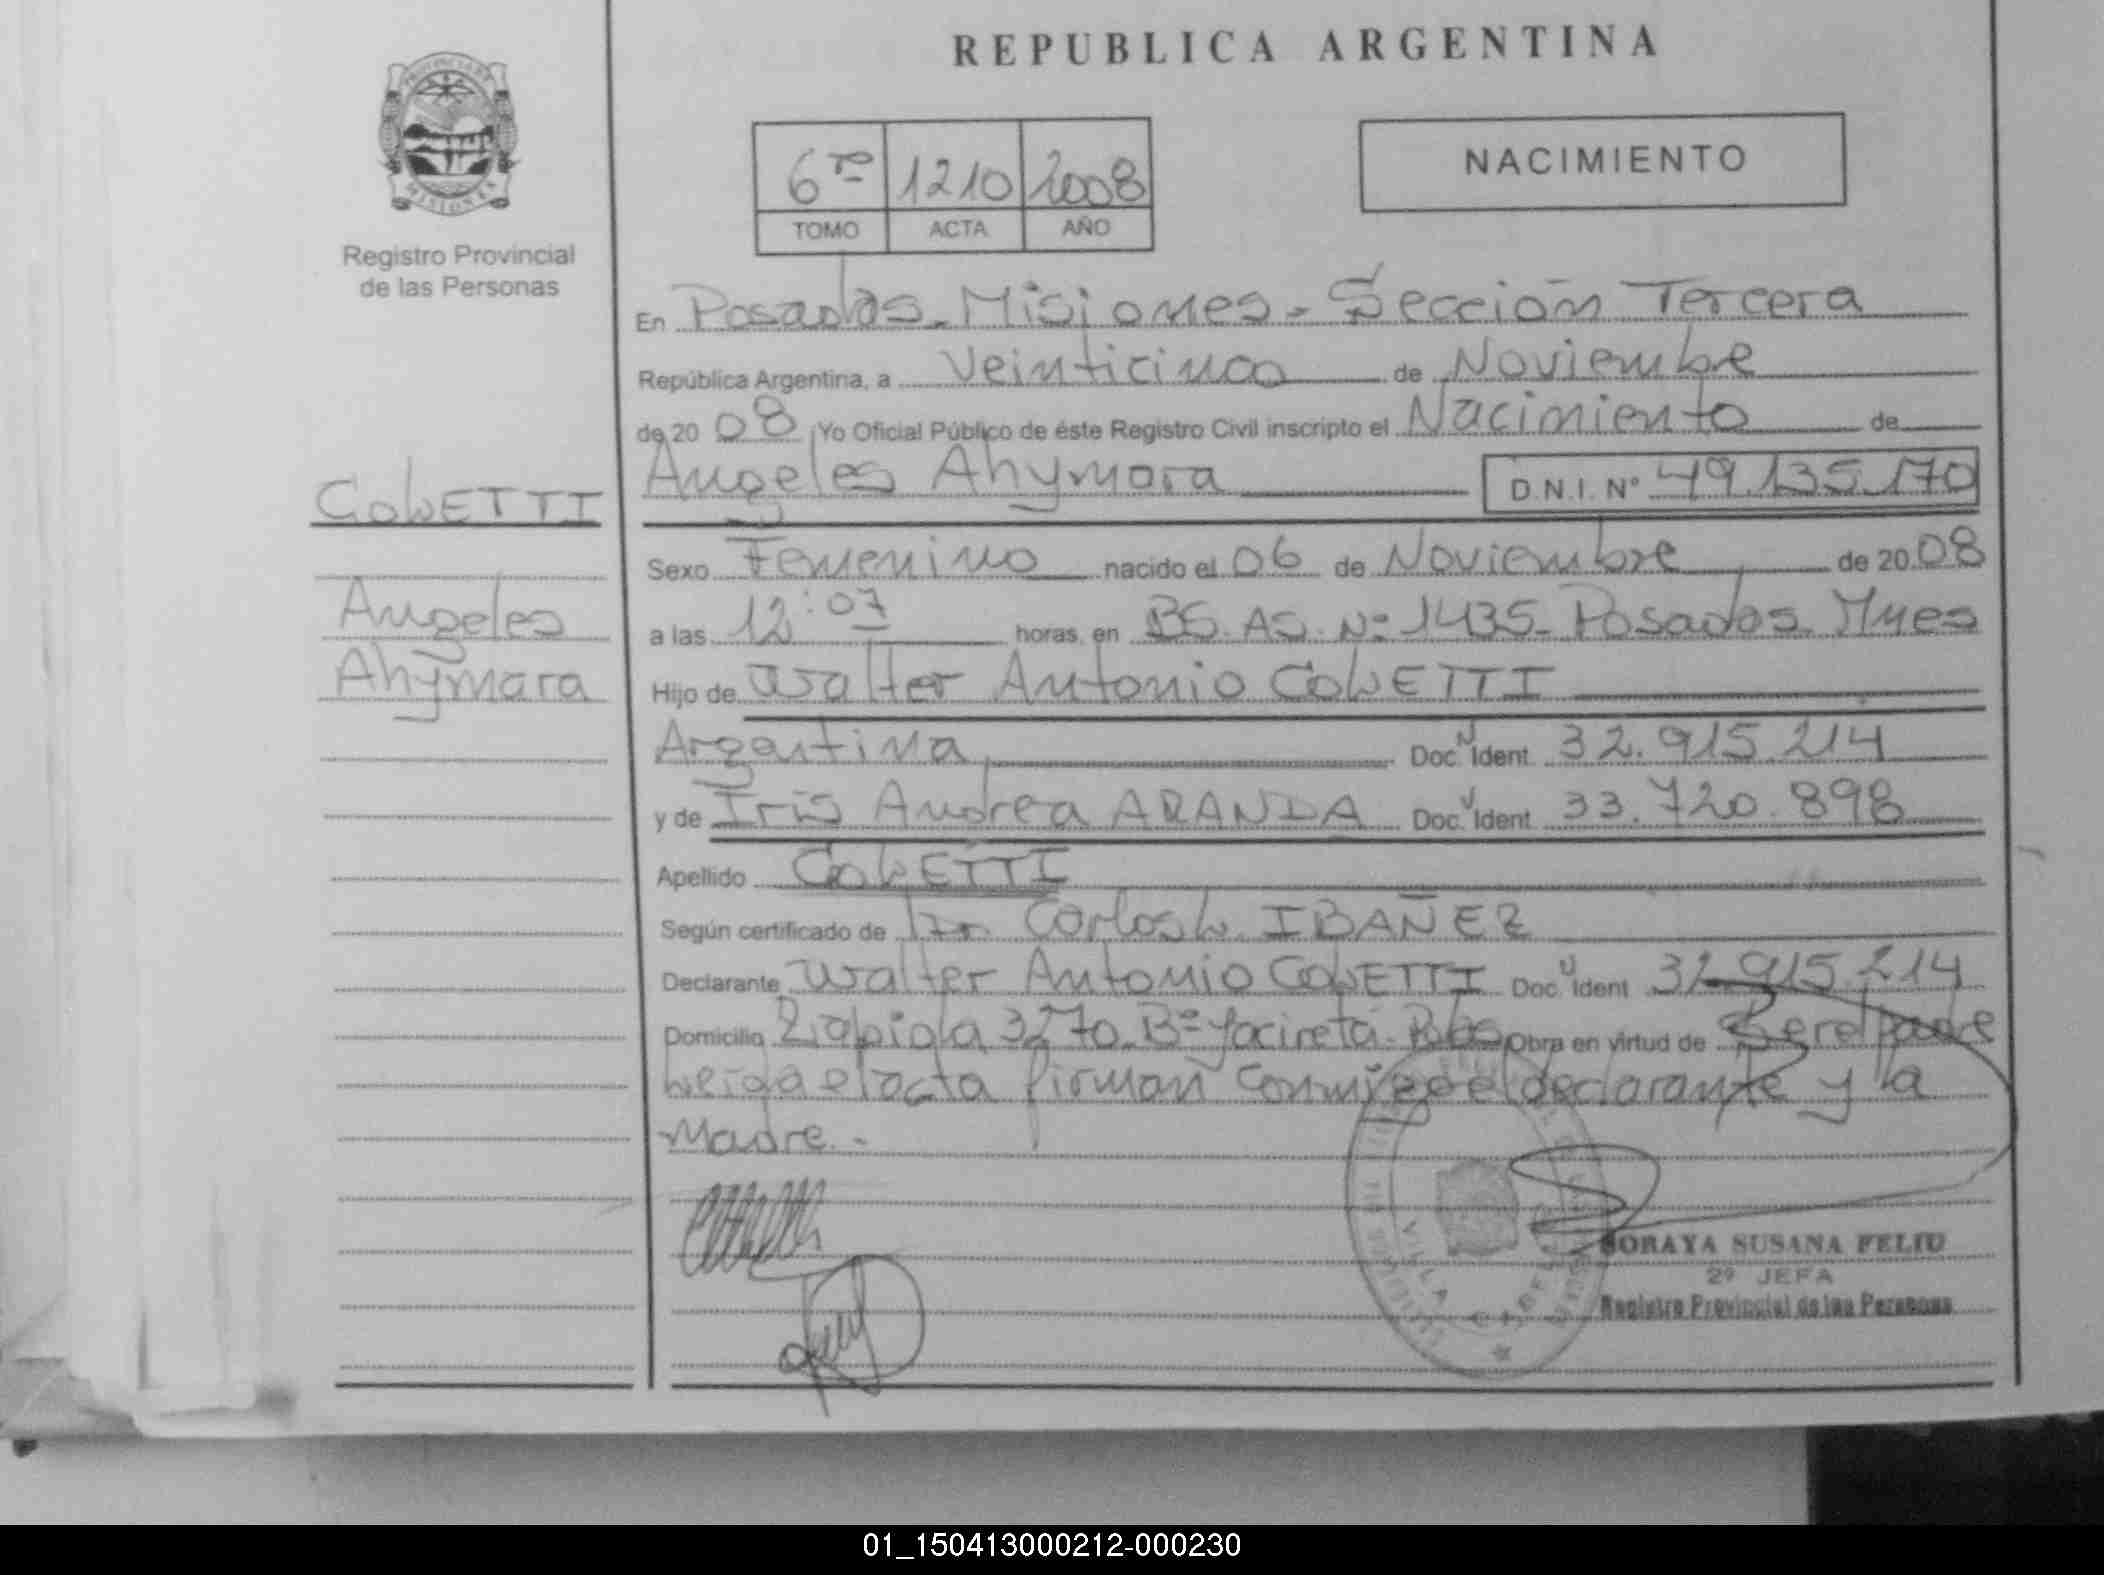 REPUBLICA ARGENTINA
PROVINCIA DE
MISIONES
Registro Provincial
de las Personas
NACIMIENTO
6to 1210 2008
TOMO ACTA AÑO
En Posadas - Misiones - Sección Tercera
República Argentina, a Veinticinco de Noviembre
de 20 08 Yo Oficial Público de éste Registro Civil inscripto el Nacimiento de
Angeles Ahymara D.N.I. Nº 49.135.170
Sexo Femenino nacido el 06 de Noviembre de 20 08
a las 12:07 horas, en BS. AS. Nº 1435 - Posadas Mnes
Hijo de Walter Antonio COLETTI
Argentina Doc. Ident. 32.915.214
y de Iris Andrea ARANDA Doc. Ident. 33.720.898
Apellido COLETTI
Según certificado de Dr. Carlos L. IBAÑEZ
Declarante Walter Antonio COLETTI Doc. Ident. 32.915.214
Domicilio 3270 Bº Yacireta - Pdas Obra en virtud de Ser el padre
Leida el acta firman conmigo el declarante y la
Madre.-
COLETTI
Angeles
Ahymara
VILLA CABELLO
SORAYA SUSANA FELIU
2º JEFA
Registro Provincial de las Personas
01_150413000212-000230